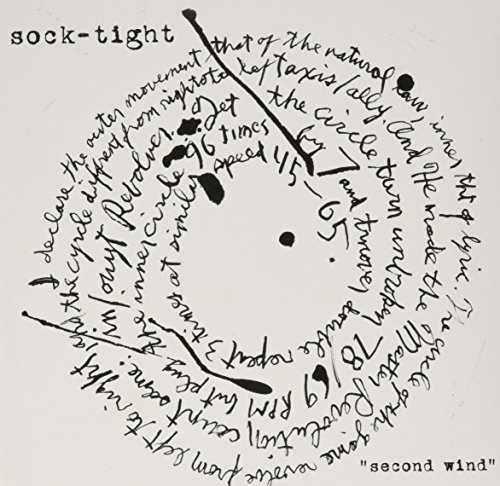 sock-tight
I declare the outer movement, that of the natural law, inner tht of lyric. The circle of the game revolve from left to right
and the cycle different from right to left axis/ally. And He made the Master Revolution, count same.
in/ouyt Revolver. Jet the circle turn unbroken 78/69 RPM but plug
the inner circle 96 times by 7 and double repeat 3 times at
speed 45-65.
"second wind"